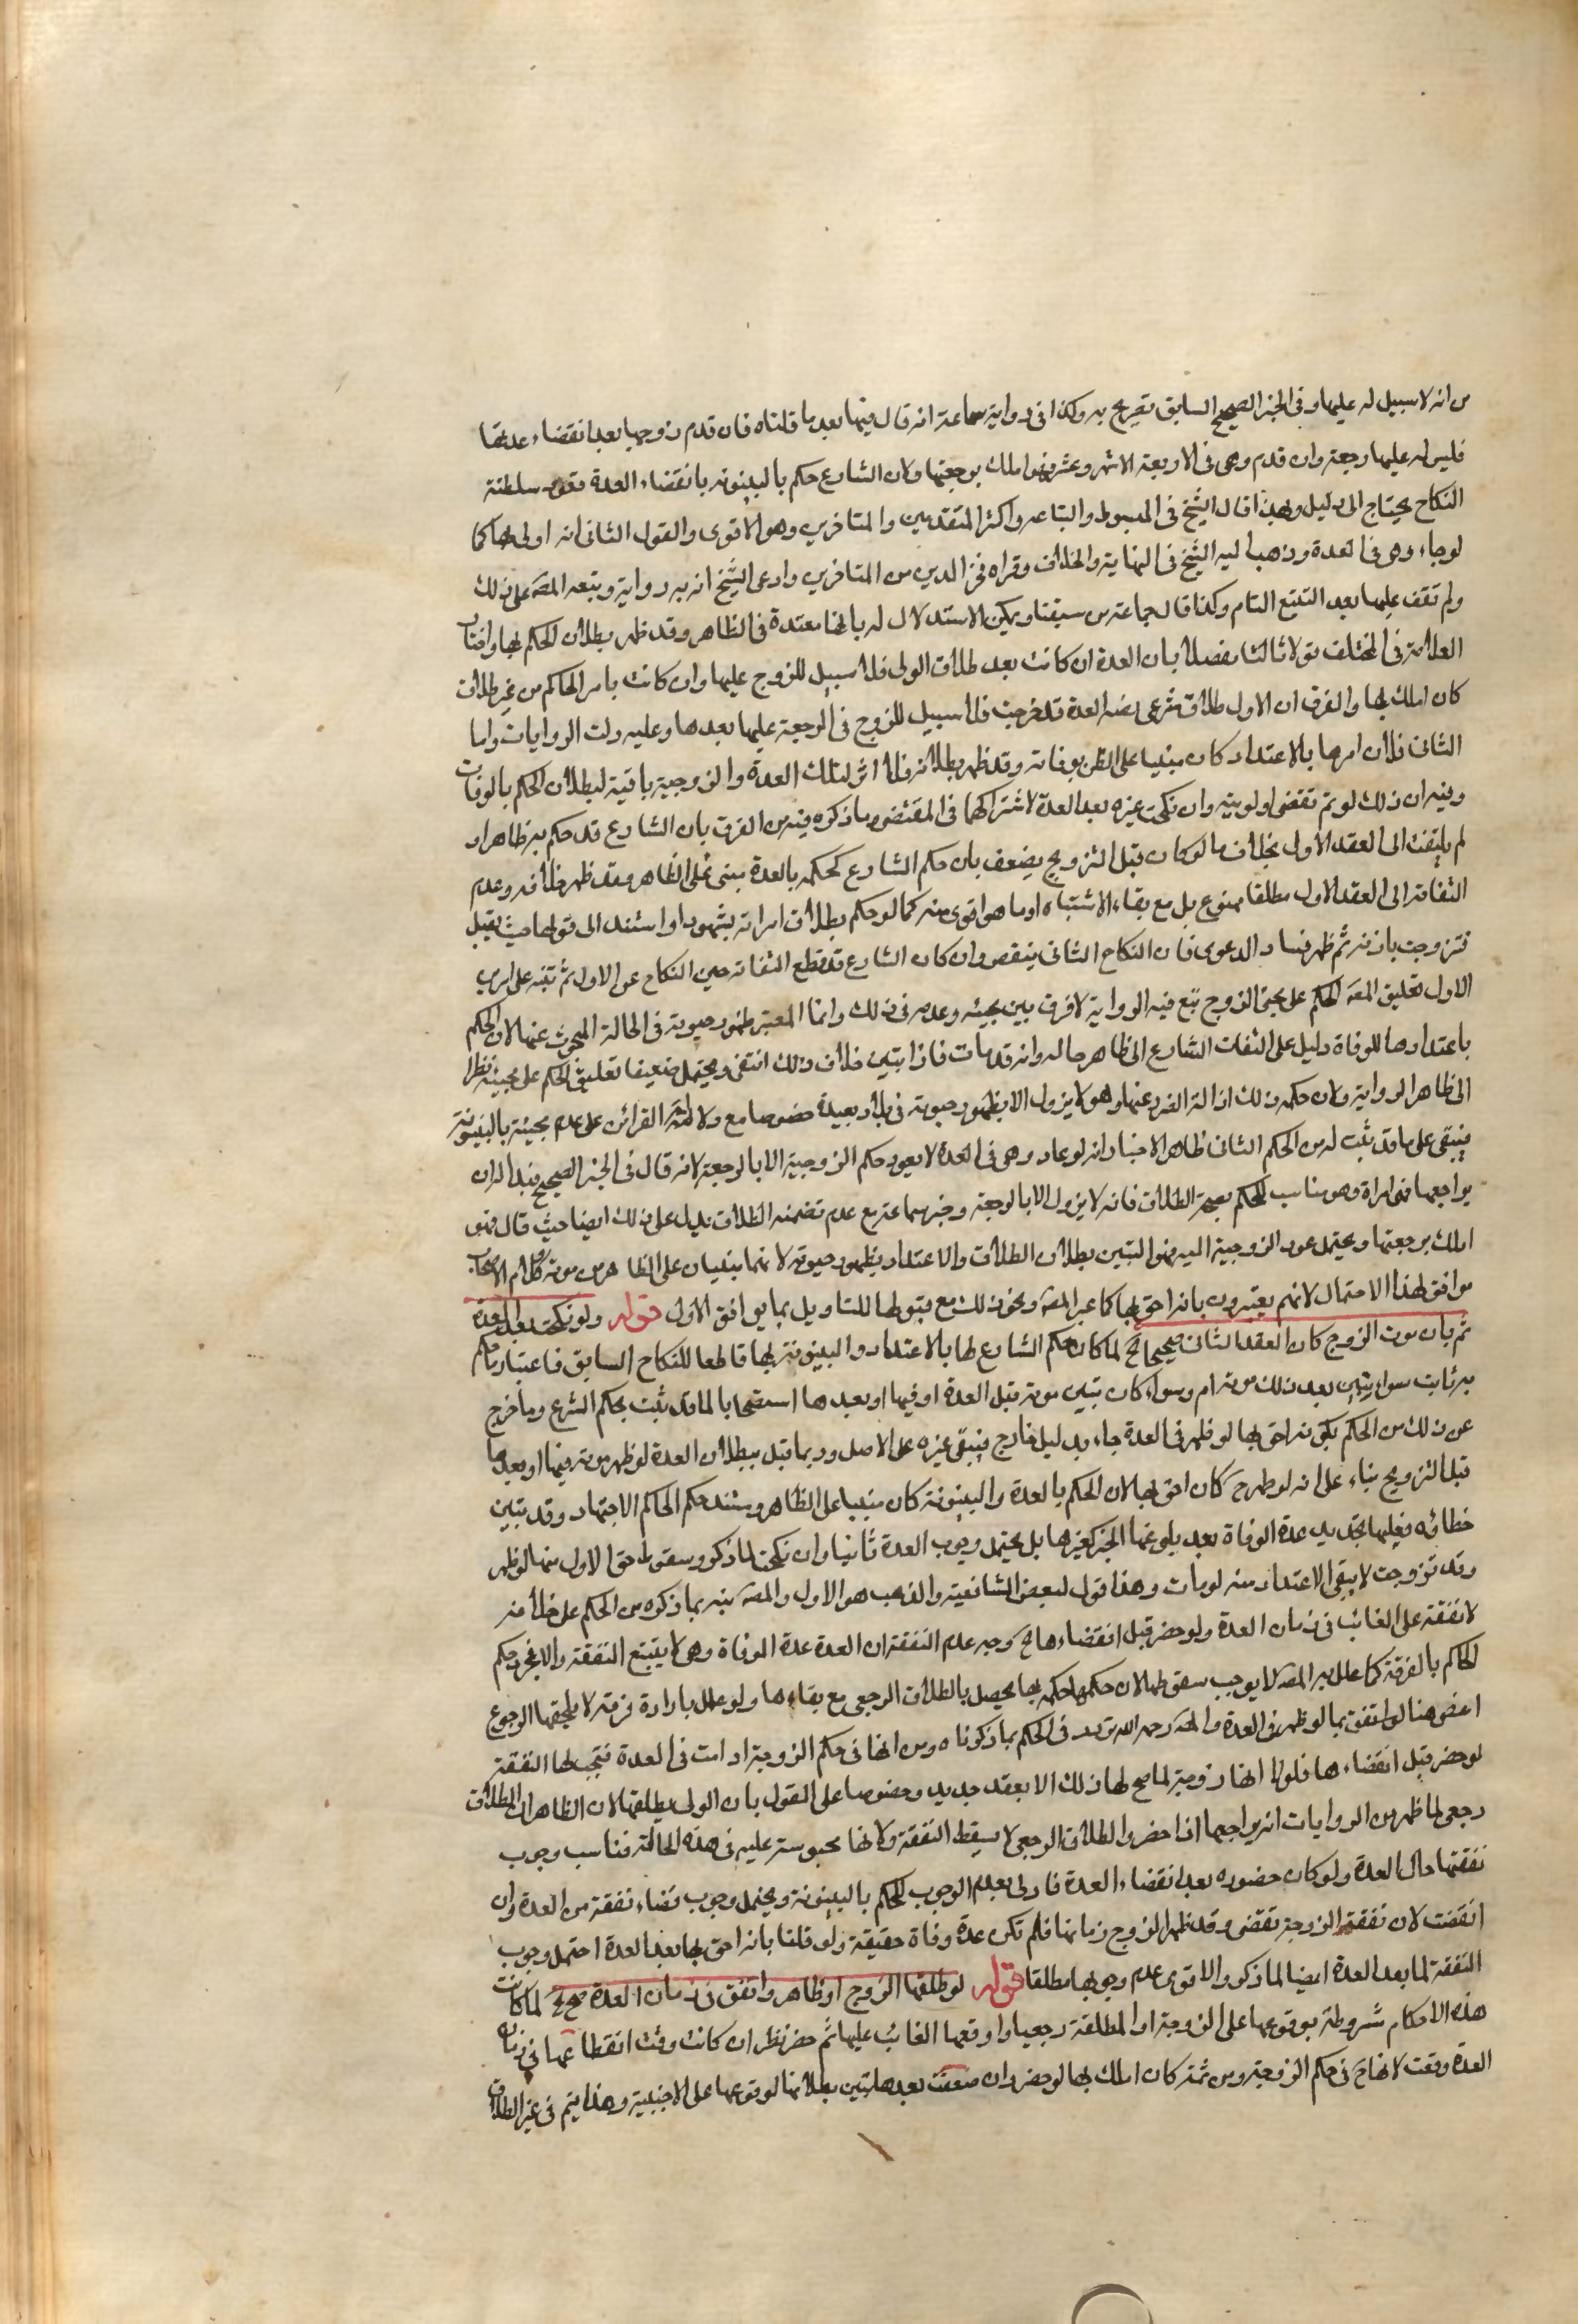 من انه لا سبيل له عليها وفى الخبر الصحيح السابق تصريح به وكذا فى رواية سماعة انه قال فيها بعد ما قلناه فان قدم زوجها بعد انقضاء عدتها
فليس له عليها رجعة وان قدم وهى فى الاربعة الاشهر وعشر فهو املك برجعتها ولان الشارع حكم بالبينونه بانقضاء العدة فعود سلطنة
النكاح يحتاج الى دليل وبهذا قال الشيخ فى المبسوط والتباعه واكثر المتقدمين والمتاخرين وهو الاقوى والقول الثانى انه اولى بها كما
لو جاء وهى فى العدة وذهب اليه الشيخ فى النهاية والخلاف وقراه فخر الدين من المتاخرين وادعى الشيخ انه به رواية وتبعه المصه على ذلك
ولم نقف عليها بعد التتبع التام وكذا قال جماعة من سبقنا ويمكن الاستدلال له بانها معتدة فى الظاهر وقد ظهر بطلان الحكم بها وافتاب
العلامة فى المختلف قولا ثالثا مفصلا بان العدة ان كانت بعد طلاق الولى فلا سبيل للزوج عليها وان كانت بامر الحاكم من غير طلاق
كان املك بها والفرق ان الاول طلاق شرعى بعد العدة قد خرجت فلا سبيل للزوج فى الرجعة عليها بعدها وعليه دلت الروايات واما
الثانى فلان امرها بالاعتداد كان مبنيا على الظن بوفاته وقد ظهر بطلانه فلا اثر لتلك العدة والزوجية باقية لبطلان الحكم بالوفات
وفيه ان ذلك لو تم تقضى اولويته وان نكحت غيره بعد العدة لاشتراكهما فى المقتضى وما ذكروه فيه من الفرق بان الشارع قد حكم به ظاهرا و
لم يلتفت الى العقد الاول بخلاف ما لو كان قبل التزويج يضعف بان حكم الشارع كحكمه بالعدة مبنى على الظاهر وقد ظهر خلافه وعدم
التفاته الى العقد الاول مطلقا ممنوع بل مع بقاء الاشتباه او ما هو اقوى منه كما لو حكم بطلاق امراته بشهود او استند الى قولها حيث يقبل
فتزوجت باذنه ثم ظهر فساد الدعوى فان النكاح الثانى ينقض وان كان الشارع قد قطع التفاته حين النكاح عن الاول ثم تنبه على امرين
الاول تعليق المصه الحكم على مجئ الزوج تبع فيه الرواية لا فرق بين مجيئه وعدمه فى ذلك وانما المعتبر ظهور حيوته فى الحالة المبحوث عنها لان الحكم
باعتدادها للوفاة دليل على التفات الشارع الى ظاهر حاله وانه قد مات فاذا تبين خلاف ذلك انتفى ويحتمل ضعيفا تعليق الحكم على مجيئه نظرا
الى ظاهر الرواية ولان حكمة ذلك ازالة الضرر عنها وهو لا يزول الا بظهور حيوته فى بلاد بعيدة خصوصا مع دلالة القرائن على عدم مجيئه بالبينونة
فيبقى على ما قد ثبت له من الحكم الثانى ظاهر الاخبار انه لو عاد وهى فى العدة لا يعود حكم الزوجية الا بالرجعة لانه قال فى الخبر الصحيح فبدا له ان
يراجعها فهى امراة وهو مناسب للحكم بصحة الطلاق فانه لا يزول الا بالرجعة وخبر سماعة مع عدم تضمنه الطلاق يدل على ذلك ايضا حيث قال فهو
املك برجعتها ويحتمل عود الزوجية اليه فهو التبين بطلان الطلاق والاعتداد بظهور حيوته لانهما مبنيان على الظاهر من موته وكلام الاصحاب
موافق لهذا الاحتمال لانهم يعتبرون بانه احق بها كما عبر المصه ونحو ذلك مع قبولها للتاويل بما يوافق الاول قوله ولو نكحت بعد العدة
ثم بان موت الزوج كان العقد الثانى صحيحا الخ لما كان حكم الشارع لها بالاعتداد والبينونة بها قاطعا للنكاح السابق فاعتبار ما حكم
به ثابت سواء تبين بعد ذلك موته ام وسواء كان تبين موته قبل العدة او فيها او بعدها استصحابا لما قد ثبت بحكم الشرع وما خرج
عن ذلك من الحكم بكونه احق بها لو ظهر فى العدة جاء بدليل خارج فيبقى غيره على الاصل وربما قيل ببطلان العدة لو ظهر موته فيها او بعدها
قبل التزويج بناء على انه لو ظهر ح كان احق بها لان الحكم بالعدة والبينونة كان مبنيا على الظاهر ومستند حكم الحاكم الاجتهاد وقد تبين
خطاؤه فعليها تجديد عدة الوفاة بعد بلوغها الخبر كغيرها بل يحتمل وجوب العدة ثانيا وان نكحت لما ذكر وسقوط حق الاول منها لو ظهر
وقد تزوجت لا ينفى الاعتداد منه لو مات وهذا قول لبعض الشافعية والمذهب هو الاول والمصه نبه بما ذكره من الحكم على خلافه
لا نفقة على الغائب فى زمان العدة ولو حضر قبل انقضاءها الخ وجه عدم النفقة ان العدة عدة الوفاة وهى لا يتبع النفقة والا فمجرد حكم
الحاكم بالفرقة كما علل به المصه لا يوجب سقوطها لان حكمها حكمه بها يحصل بالطلاق الرجعى مع بقاءها ولو علل بارادة فرقة لا يلحقها الرجوع
اعفى هنا لو اتفق بما لو ظهر فى العدة والمصه رحمه الله تردد فى الحكم بما ذكرناه ومن انها فى حكم الزوجة ما دامت فى العدة فتجب لها النفقة
لو حضر قبل انقضاءها فلولا انها زوجة لما صح لها ذلك الا بعقد جديد وخصوصا على القول بان الولى يطلقها لان الظاهر ان الطلاق
رجعى لما ظهر من الروايات انه يراجعها اذا حضر والطلاق الرجعى لا يسقط النفقة ولانها محبوسة عليه فى هذه الحالة فناسب وجوب
نفقتها حال العدة ولو كان حضوره بعد انقضاء العدة فاولى بعدم الوجوب للحكم بالبينونة ويحتمل وجوب قضاء نفقة من العدة وان
انقضت لان نفقة الزوجة تقضى وقد ظهر الزوج زمانها فلم تكن عدة وفاة حقيقة ولو قلنا بانه احق بها بعد العدة احتمل وجوب
النفقة لما بعد العدة ايضا لما ذكر والاقوى عدم وجوبها مطلقا قوله لو طلقها الزوج او ظاهر واتفق فى زمان العدة صح الخ لما كانت
هذه الاحكام مشروطة بوقوعها على الزوجة او المطلقة رجعيا واوقعها الغائب عليها ثم حضر نظر ان كانت وقت انقطاعها فى زمان
العدة وقعت لانها ح فى حكم الزوجية ومن ثمة كان املك بها لو حضر وان صنعت بعدها تبين بطلانها لوقوعها على الاجنبية وهذا يتم فى غير الطلاق